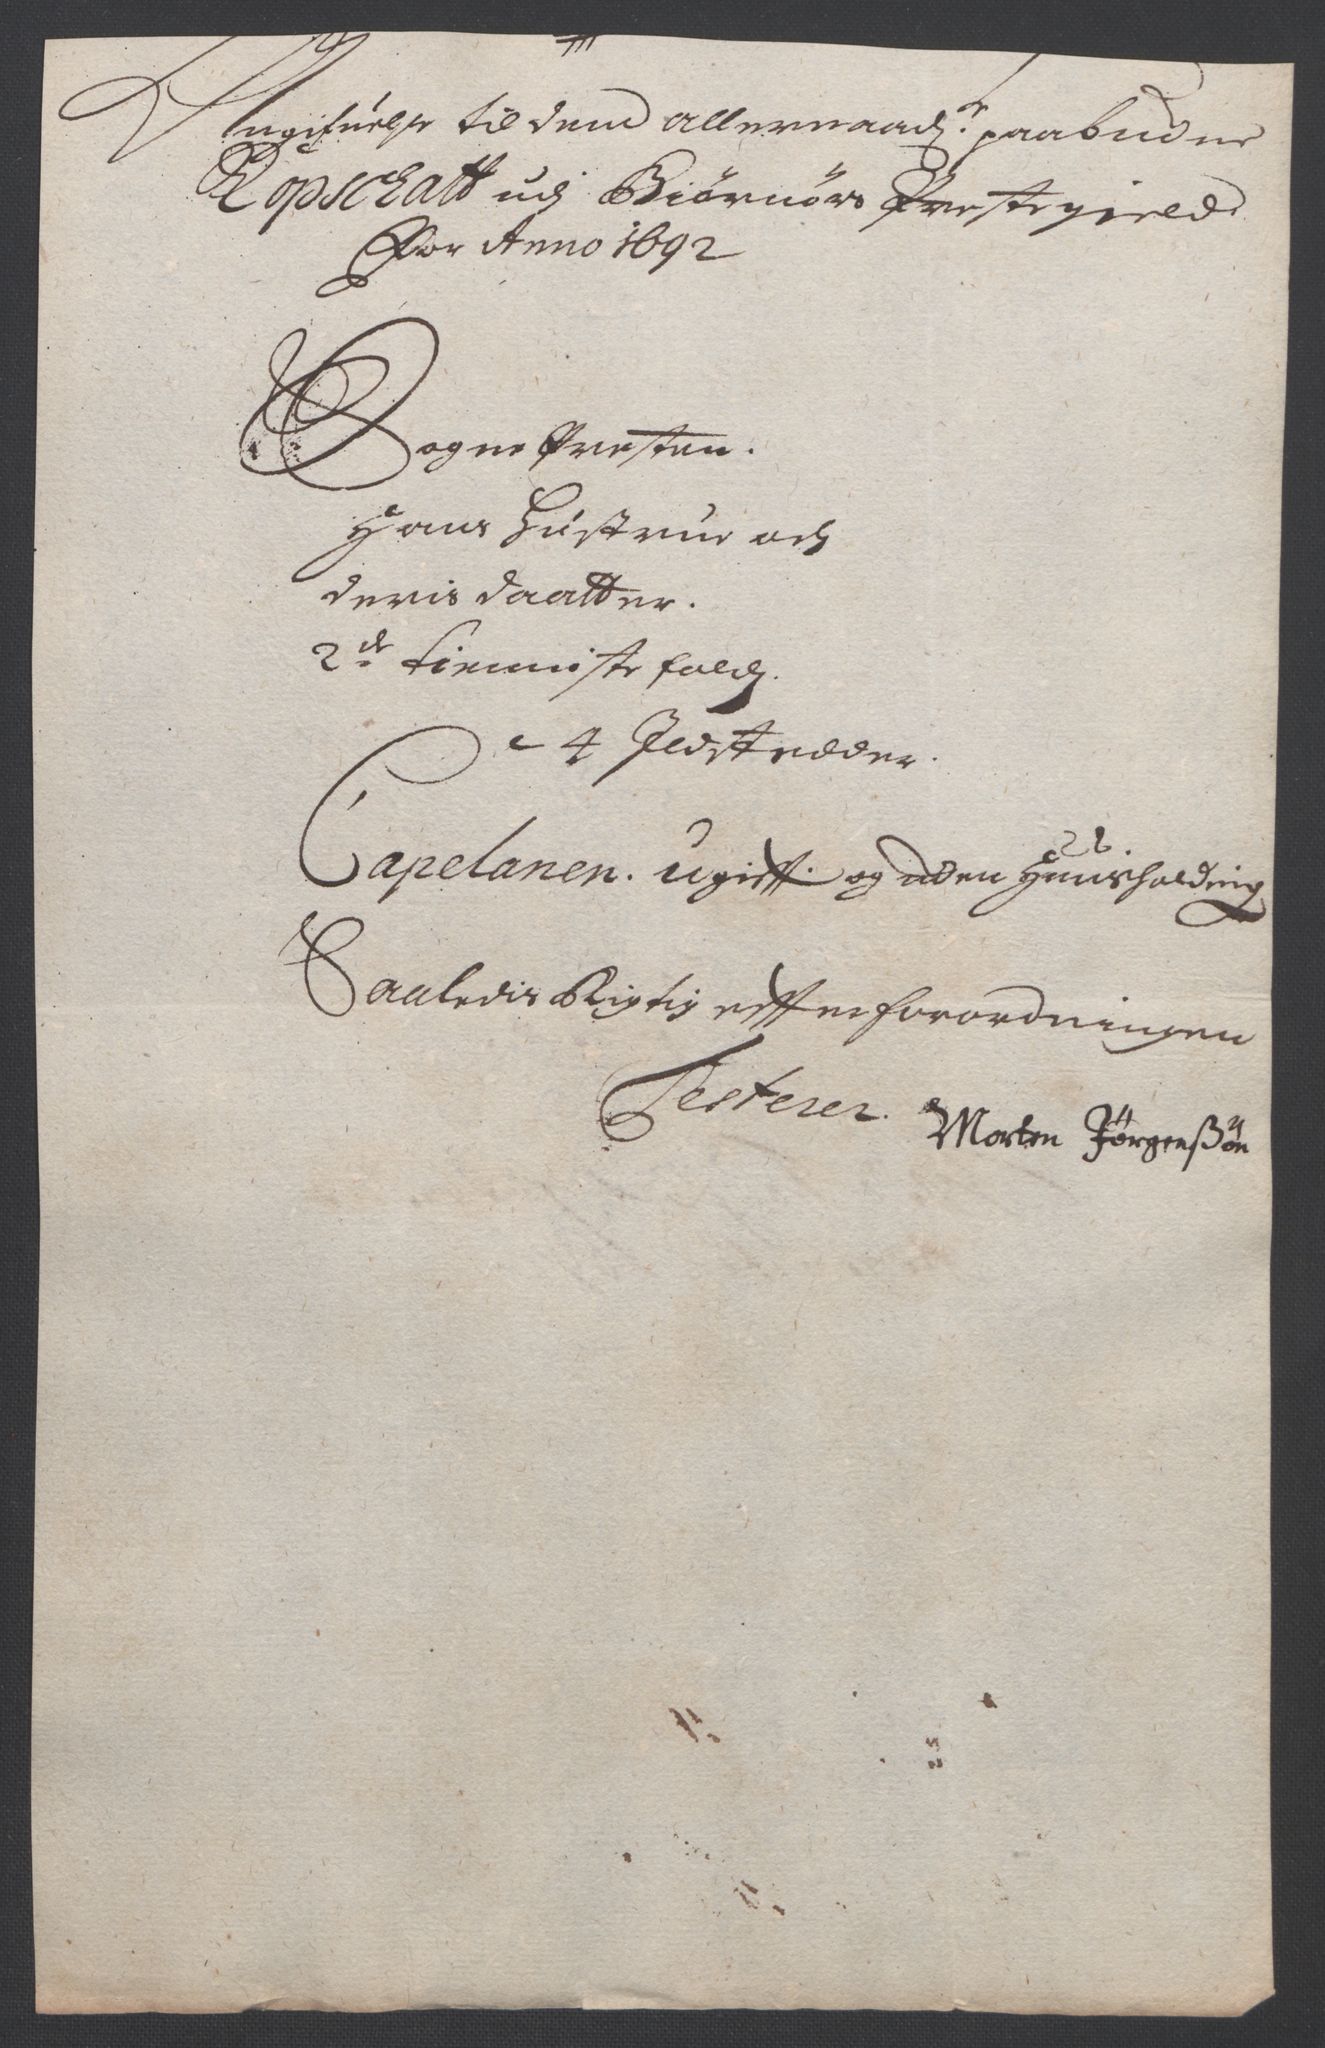 Angifuelse til dend allernaadr. paabudne
Kopschatt udj Biørnørs Prestegield
For Anno 1692
Sogne Presten.
Hans Hustrue och
deris daatter.
2de tienniste folch.
4 Jldstedder.
Capelanen. ugifft. og uden Huusholding
Saaledis Rigtig effter forordningen
Testerer. Morten Jørgenßøn